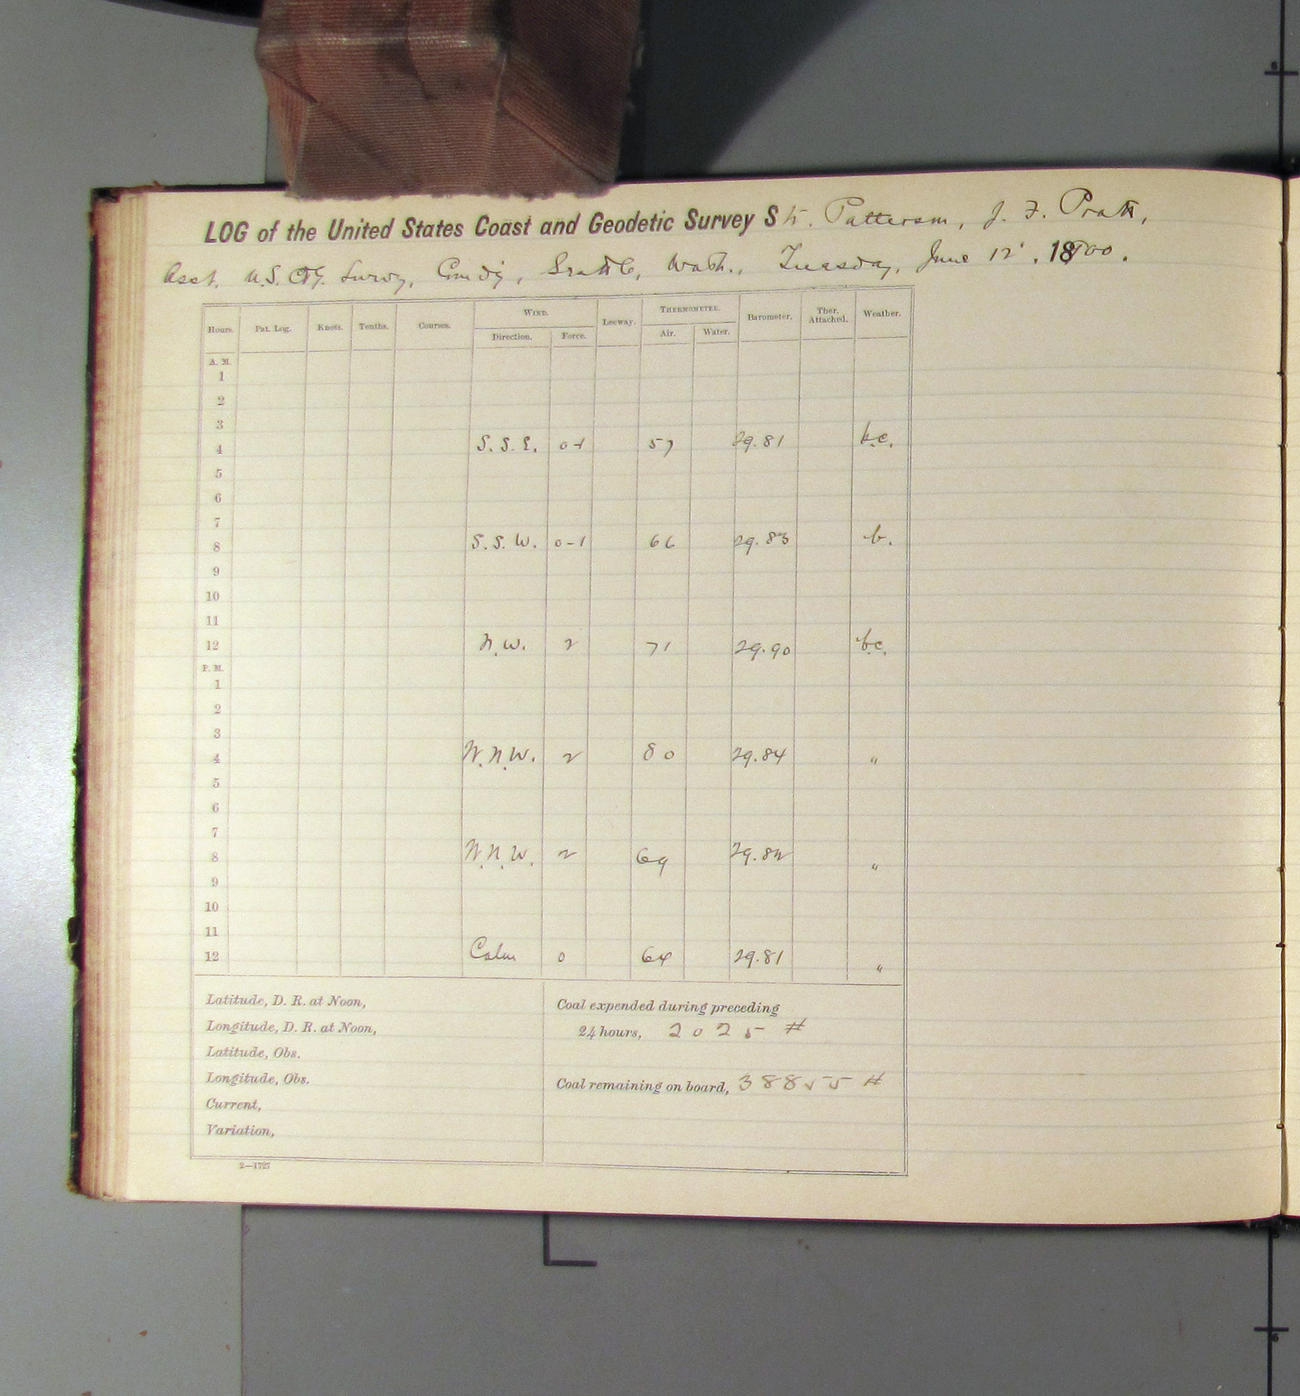 LOG of the United States Coast and Geodetic Survey Str. Patterson, J. F. Pratt,
Asst. U.S. C&G. Survey, Comd'g, Seattle, Wash., Tuesday, June 12, 1900.
Hours. Pat. Log. Knots. Tenths. Courses. WIND. Leeway. THERMOMETER. Barometer. Ther. Attached. Weather.
Direction. Force. Air. Water.
A. M.
1
2
3
4 S. S. E. 0-1 57 29.81 b.c.
5
6
7
8 S. S. W. 0-1 66 29.83 b.
9
10
11
12 N. W. 2 71 29.90 b.c.
P. M.
1
2
3
4 W. N. W. 2 80 29.84 "
5
6
7
8 W. N. W. 2 69 29.82 "
9
10
11
12 Calm 0 64 29.81 "
Latitude, D. R. at Noon,
Longitude, D. R. at Noon,
Latitude, Obs.
Longitude, Obs.
Current,
Variation,
Coal expended during preceding
24 hours, 2025 #
Coal remaining on board, 38855 #
2—1727